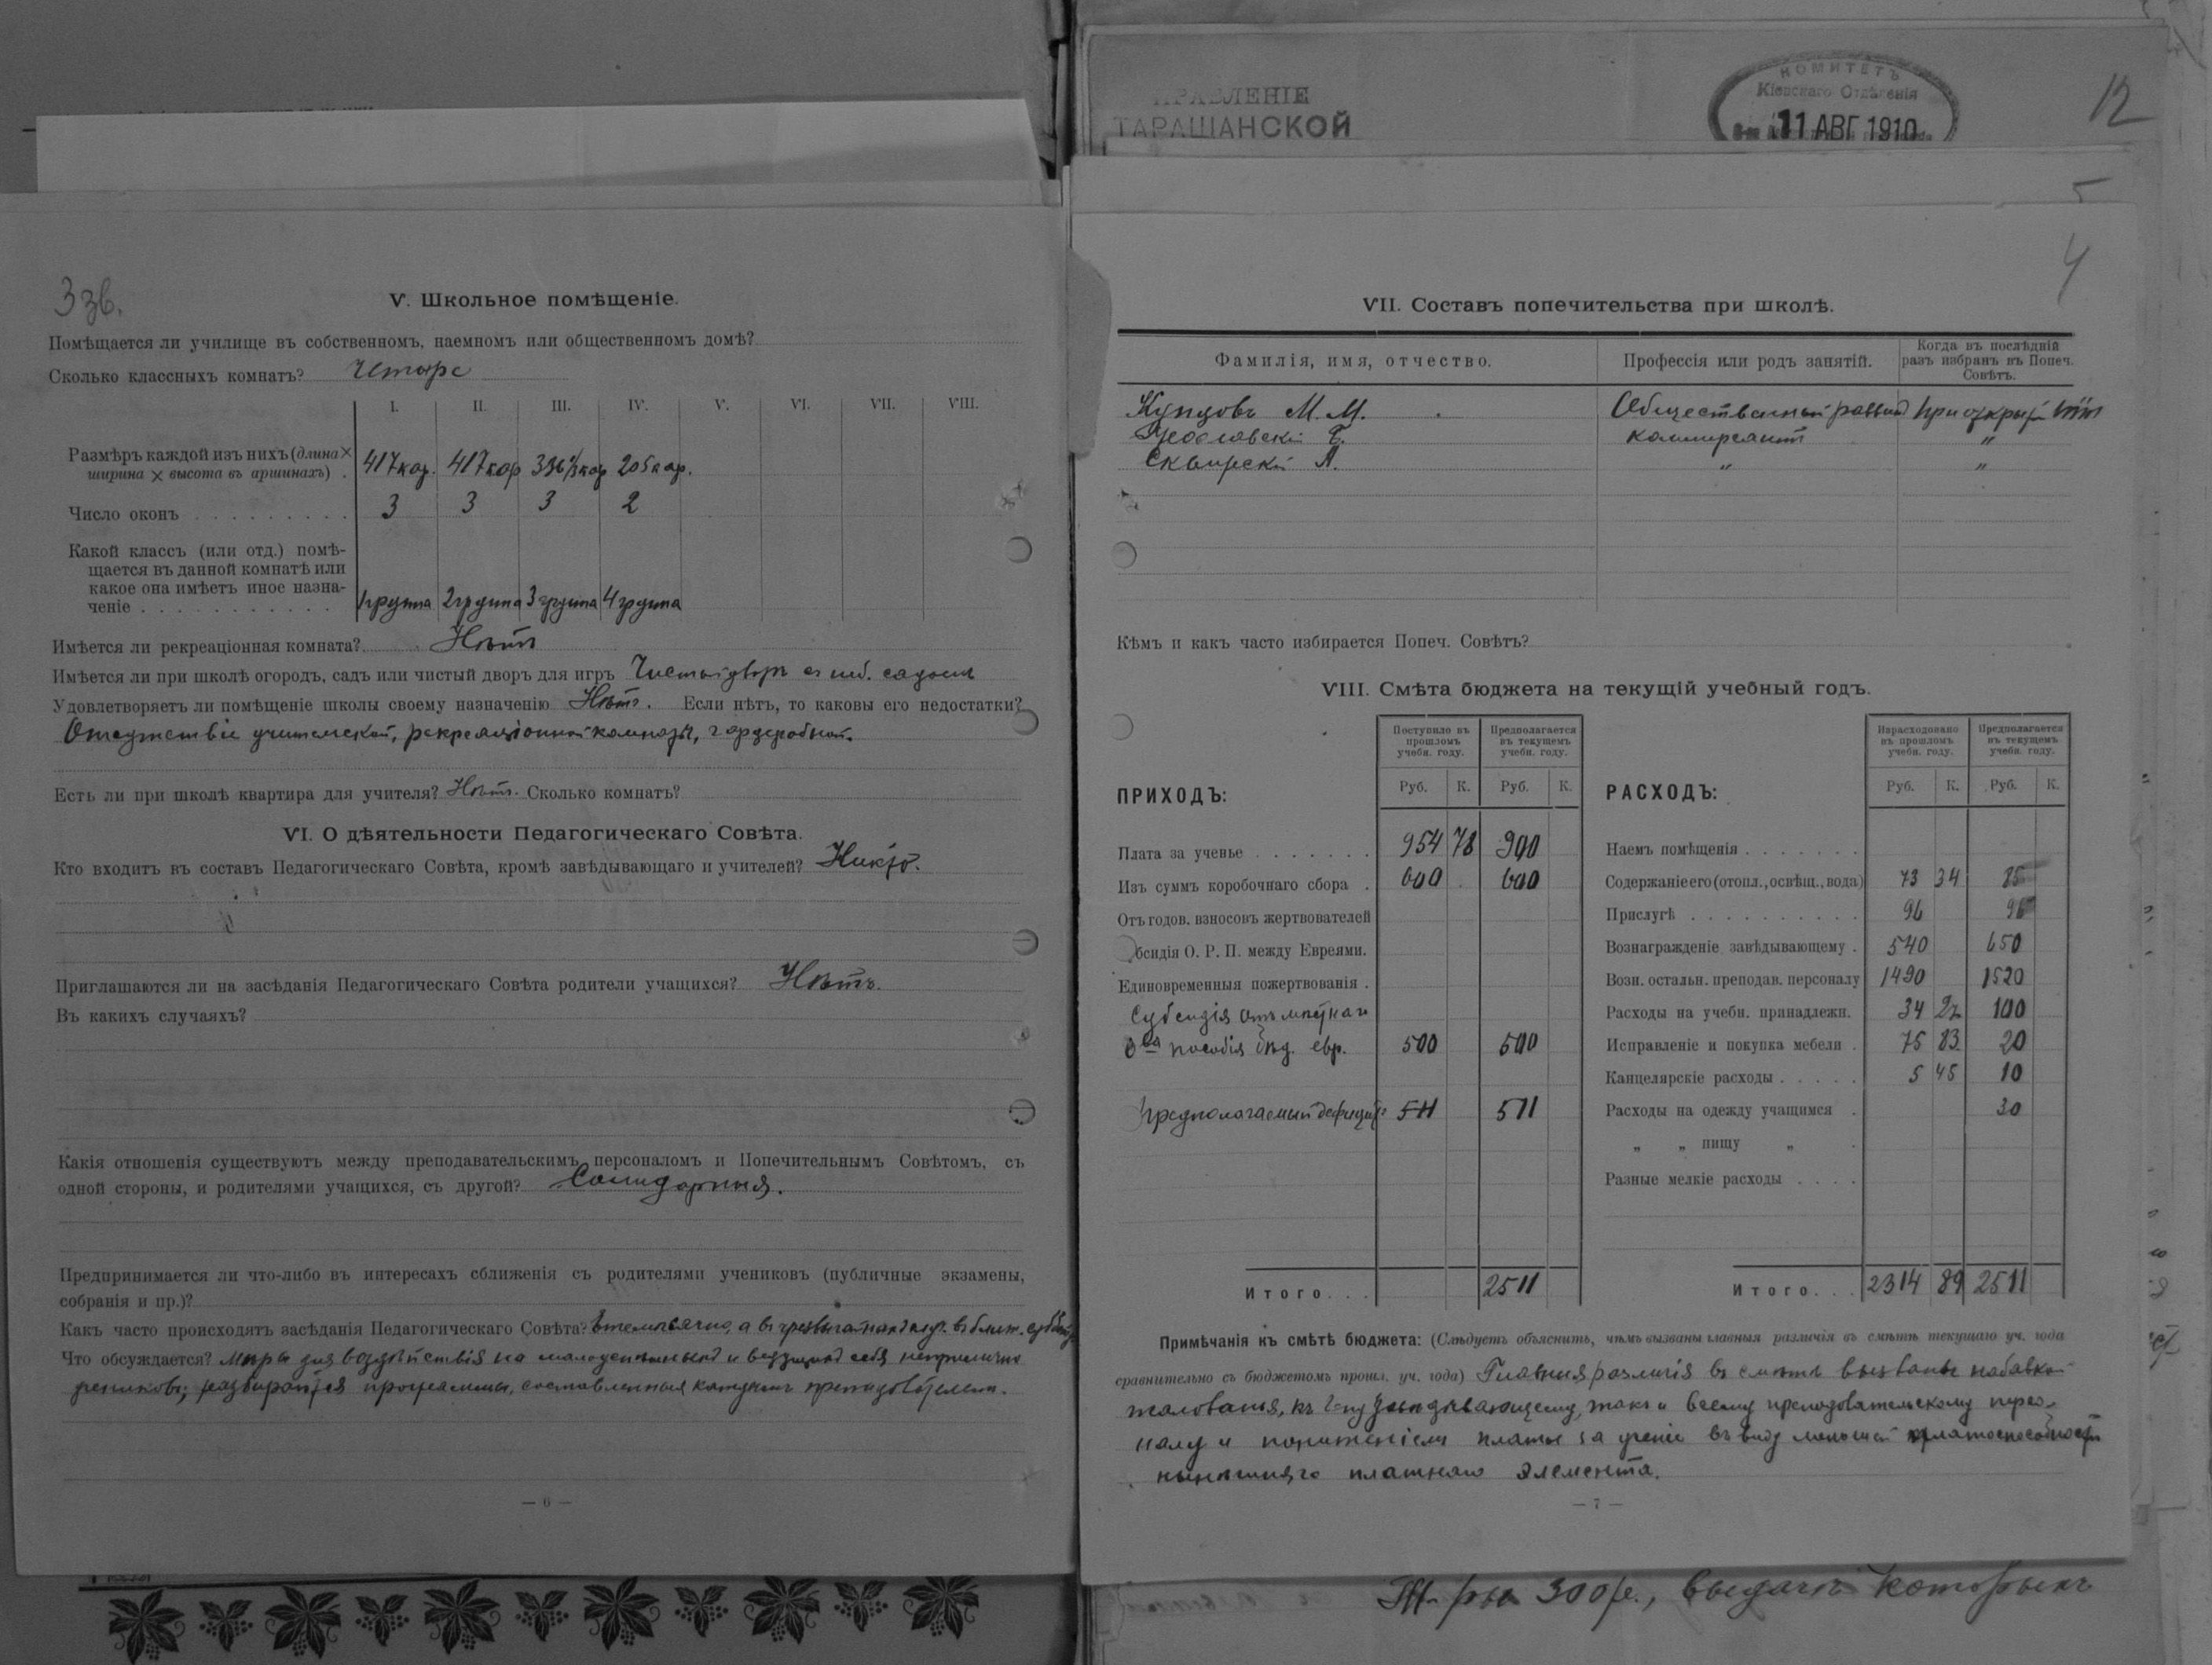 3 зв.
V. Школьное помѣщеніе.
Помѣщается ли училище въ собственномъ, наемномъ или общественномъ домѣ?
Сколько классныхъ комнатъ? Четыре
I. II. III. IV. V. VI. VII. VIII.
Размѣръ каждой изъ нихъ (длина ×
ширина × высота въ аршинахъ) . 417 к ар. 417 к ар 336 к ар 205 к ар.
Число оконъ . . . . . . . . . 3 3 3 2
Какой классъ (или отд.) помѣ-
щается въ данной комнатѣ или
какое она имѣетъ иное назна-
ченіе . . . . . . . . . . . 1 группа 2 группа 3 группа 4 группа
Имѣется ли рекреаціонная комната? Нѣтъ
Имѣется ли при школѣ огородъ, садъ или чистый дворъ для игръ Чистый дворъ съ садомъ
Удовлетворяетъ ли помѣщеніе школы своему назначенію Нѣтъ. Если нѣтъ, то каковы его недостатки?
Отсутствіе учительской, рекреаціонной комнаты, гардеробной.
Есть ли при школѣ квартира для учителя? Нѣтъ. Сколько комнатъ?
VI. О дѣятельности Педагогическаго Совѣта.
Кто входитъ въ составъ Педагогическаго Совѣта, кромѣ завѣдывающаго и учителей? Никто.
Приглашаются ли на засѣданія Педагогическаго Совѣта родители учащихся? Нѣтъ.
Въ какихъ случаяхъ?
Какія отношенія существуютъ между преподавательскимъ персоналомъ и Попечительнымъ Совѣтомъ, съ
одной стороны, и родителями учащихся, съ другой? Солидарныя.
Предпринимается ли что-либо въ интересахъ сближенія съ родителями учениковъ (публичные экзамены,
собранія и пр.)?
Какъ часто происходятъ засѣданія Педагогическаго Совѣта? Ежемѣсячно, а въ
Что обсуждается? Мѣры для воздѣйствія на малоуспѣшныхъ и ведущихъ себя неприлично
учениковъ; разбираются программы, составленныя каждымъ преподавателемъ.
— 6 —
ПРАВЛЕНІЕ
ТАРАЩАНСКОЙ
КОМИТЕТЪ
Кіевскаго Отдѣленія
11 АВГ 1910
12
5
4
VII. Составъ попечительства при школѣ.
Фамилія, имя, отчество. Профессія или родъ занятій. Когда въ послѣдній
разъ избранъ въ Попеч.
Совѣтъ.
Купцовъ М. М. Общественный раввинъ При открытіи
Б. коммерсантъ "
Сквирскій А. " "
Кѣмъ и какъ часто избирается Попеч. Совѣтъ?
VIII. Смѣта бюджета на текущій учебный годъ.
ПРИХОДЪ:
Поступило въ прошломъ учебн. году. Предполагается въ текущемъ учебн. году.
Руб. К. Руб. К.
Плата за ученье . . . . . . . 954 78 900
Изъ суммъ коробочнаго сбора . 600 600
Отъ годов. взносовъ жертвователей
бсидія О. Р. П. между Евреями.
Единовременныя пожертвованія .
Субсидія отъ мѣстнаго
о-ва пособія бѣд. евр. 500 500
Предполагаемый дефицитъ 511 511
Итого. . . 2511
РАСХОДЪ:
Израсходовано въ прошломъ учебн. году. Предполагается въ текущемъ учебн. году.
Руб. К. Руб. К.
Наемъ помѣщенія . . . . . . .
Содержаніе его (отопл., освѣщ., вода) 73 34 85
Прислугѣ . . . . . . . . . . 96 96
Вознагражденіе завѣдывающему . 540 650
Возн. остальн. преподав. персоналу 1490 1520
Расходы на учебн. принадлежн. 34 27 100
Исправленіе и покупка мебели . 75 83 20
Канцелярскіе расходы . . . . . 5 45 10
Расходы на одежду учащимся . 30
„ „ пищу „ .
Разные мелкіе расходы . . . .
Итого. . . 2314 89 2511
Примѣчанія къ смѣтѣ бюджета: (Слѣдуетъ объяснить, чѣмъ вызваны главныя различія въ смѣтѣ текущаго уч. года
сравнительно съ бюджетомъ прошл. уч. года) Главныя различія въ смѣтѣ вызваны набавкой
жалованья, какъ завѣдывающему, такъ и всему преподавательскому персо-
налу и пониженіемъ платы за ученіе въ виду меньшей платоспособности
нынѣшняго платнаго элемента.
— 7 —
300 р., выдачи которыхъ